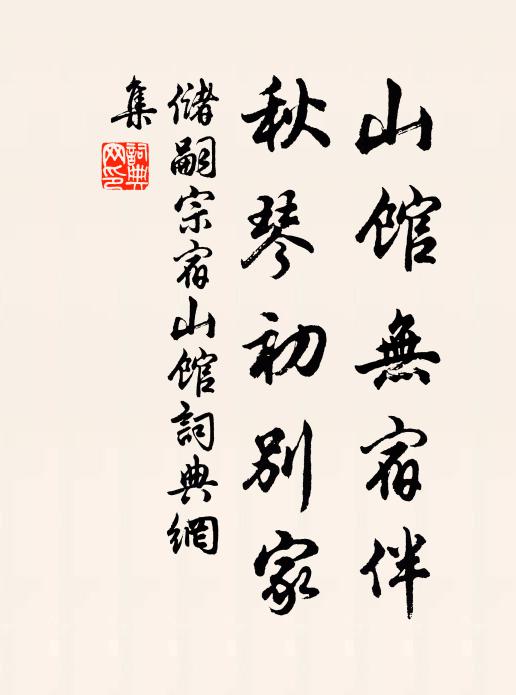 山館無宿伴
秋琴初別家
儲嗣宗宿山館詞典網
集
詞典
网印